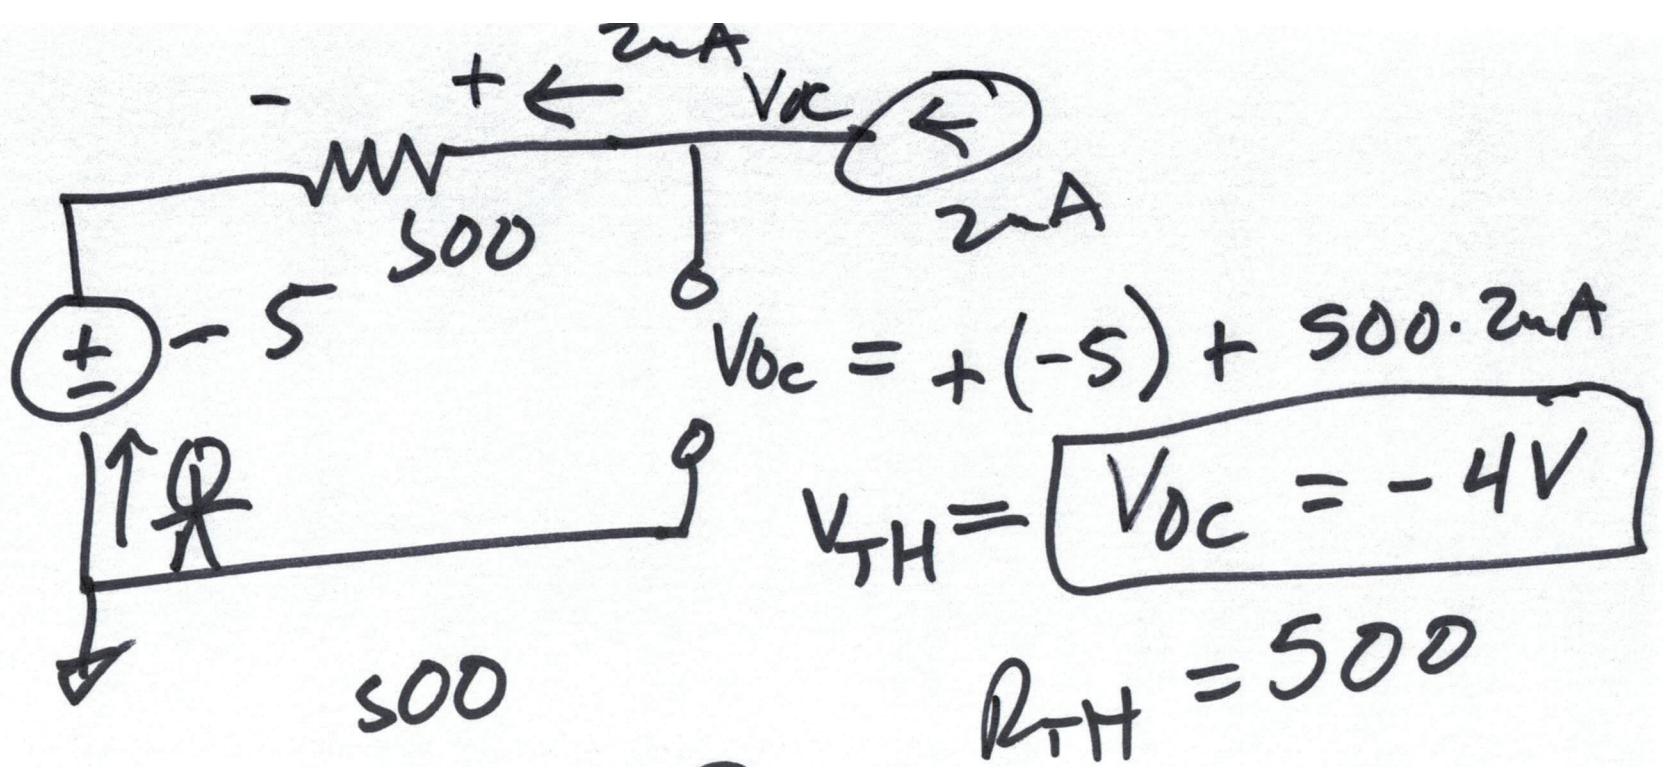 2mA
- + ← Voc ←
500
2mA
+
- - 5
Voc = +(-5) + 500·2mA
VTH = Voc = -4V
500
RTH = 500